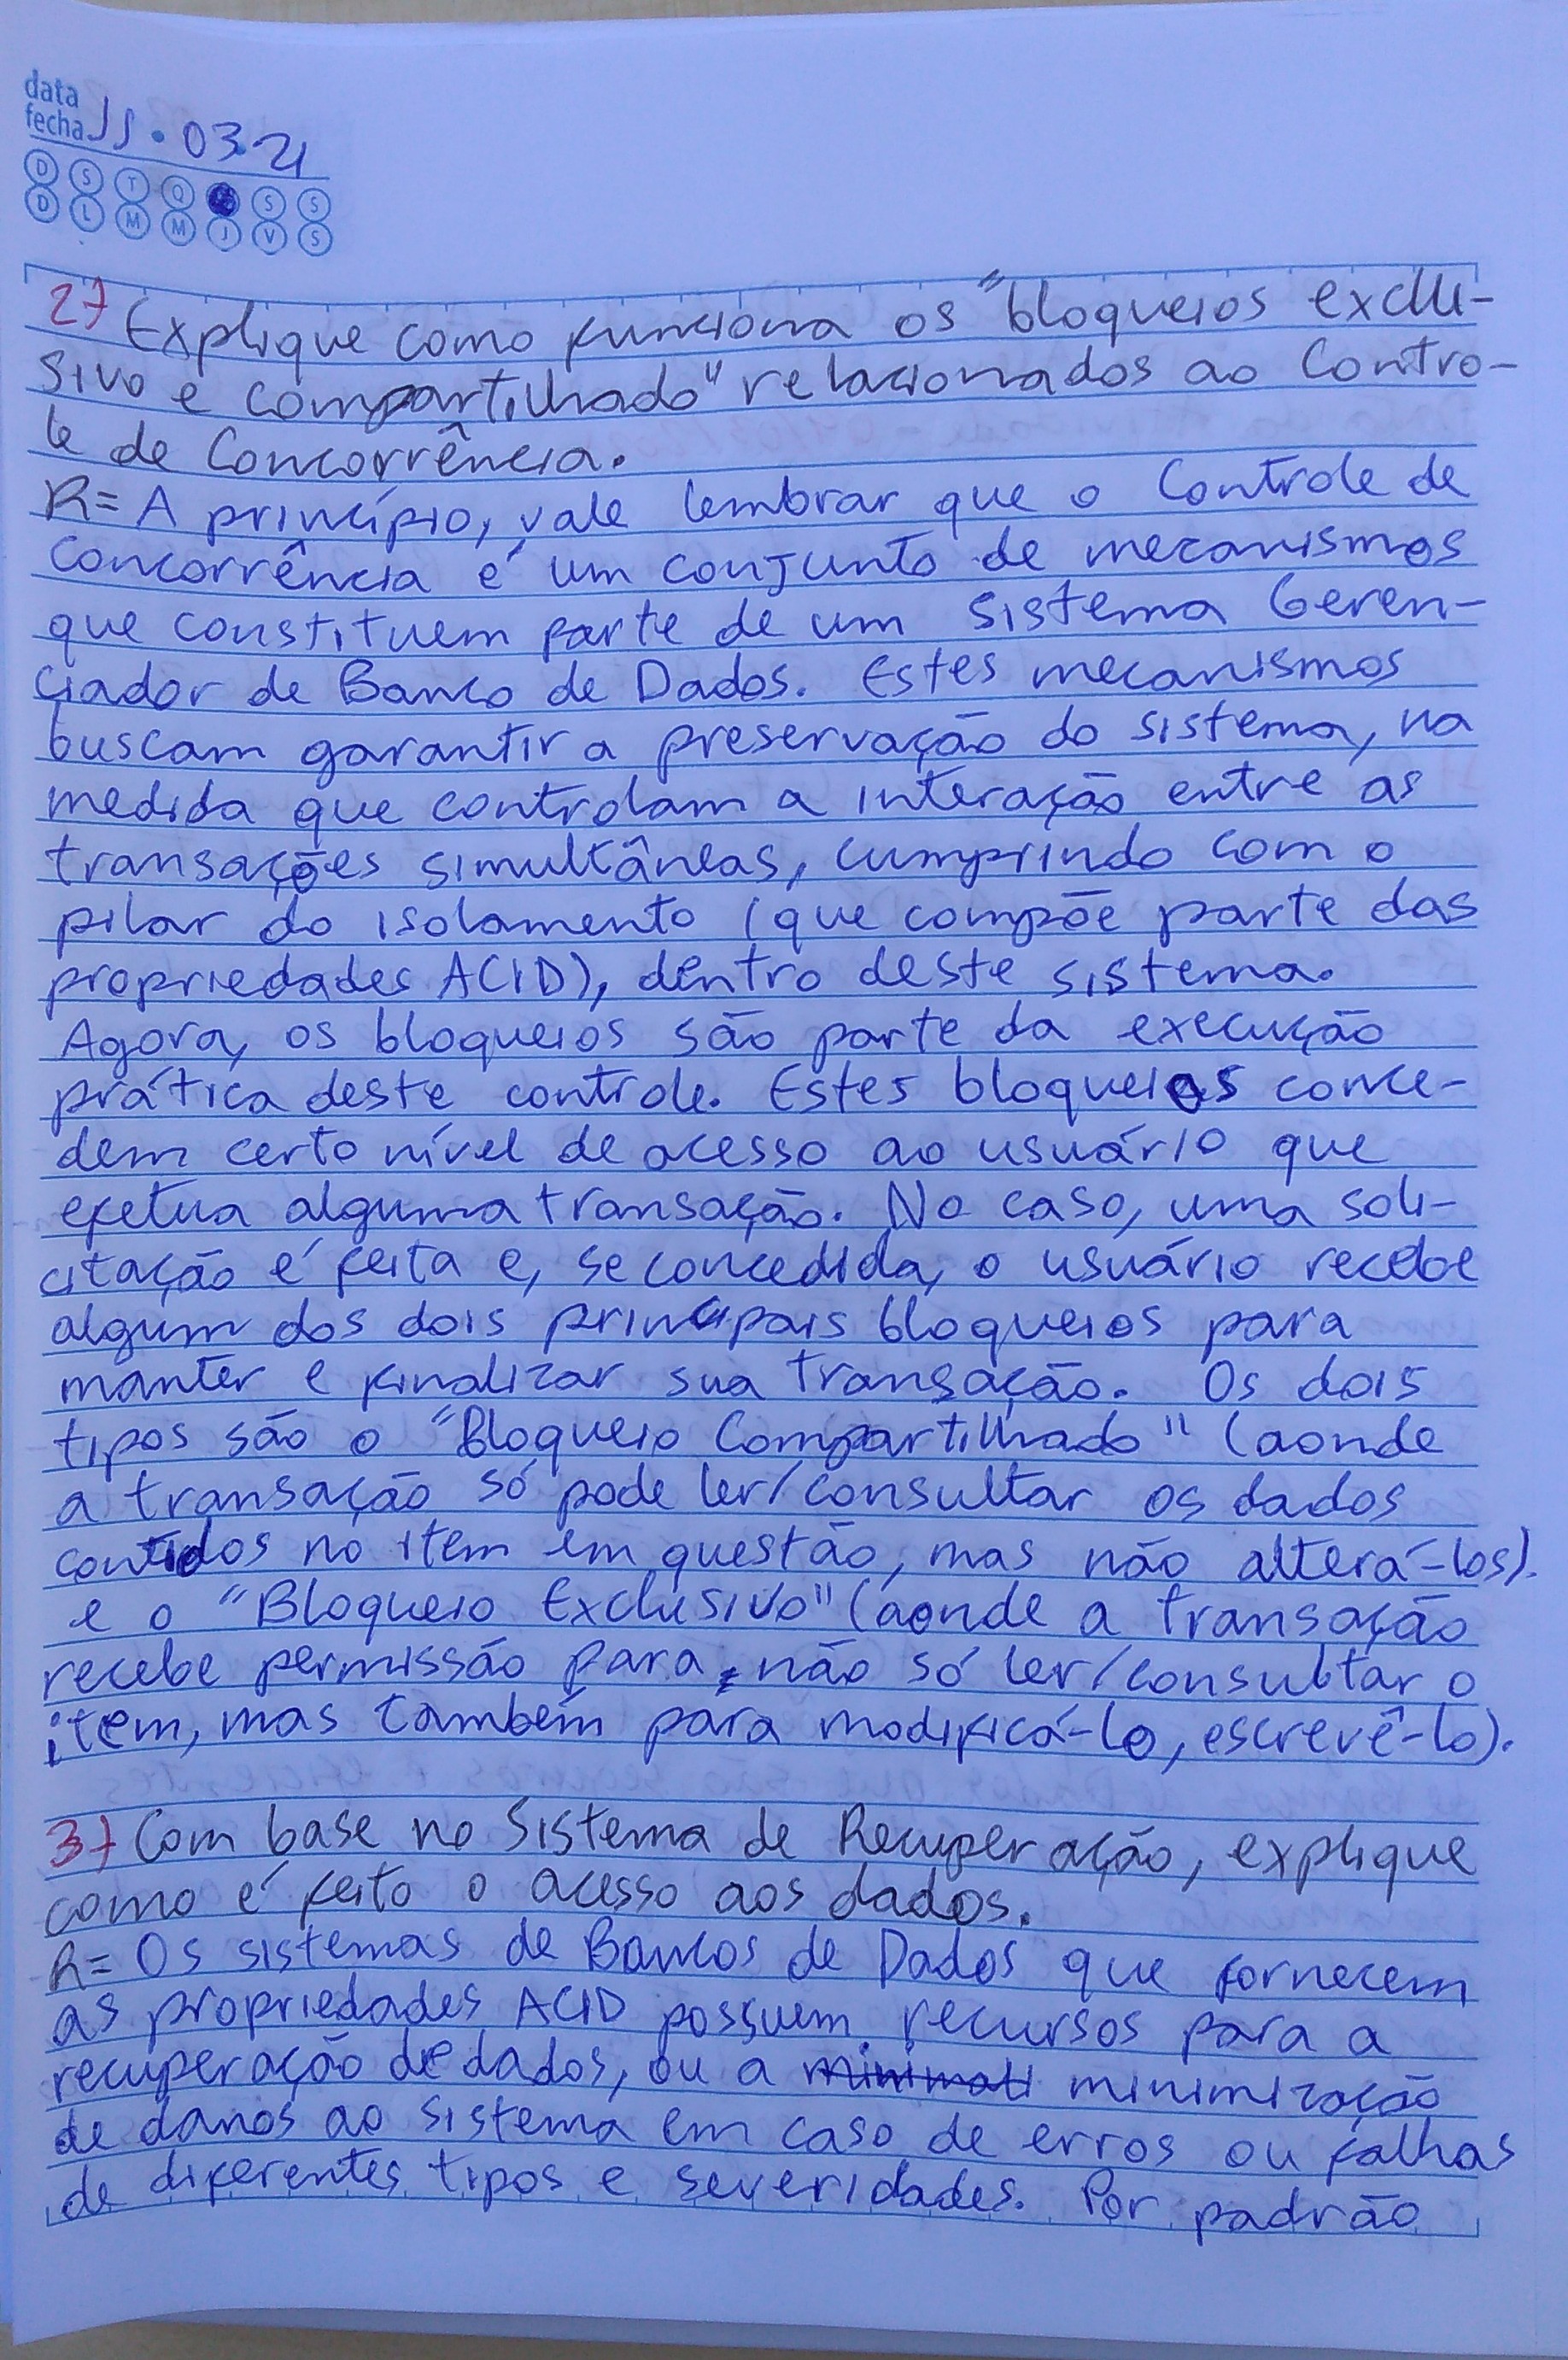 data
fecha 11.03.21
D S T Q S S
D L M M J V S
2) Explique como funciona os "bloqueios exclu-
sivo e compartilhado" relacionados ao Contro-
le de Concorrência.
R= A princípio, vale lembrar que o Controle de
Concorrência é um conjunto de mecanismos
que constituem parte de um Sistema Geren-
ciador de Banco de Dados. Estes mecanismos
buscam garantir a preservação do sistema, na
medida que controlam a interação entre as
transações simultâneas, cumprindo com o
pilar do isolamento (que compõe parte das
propriedades ACID), dentro deste sistema.
Agora, os bloqueios são parte da execução
prática deste controle. Estes bloqueios conce-
dem certo nível de acesso ao usuário que
efetua alguma transação. No caso, uma soli-
citação é feita e, se concedida, o usuário recebe
algum dos dois principais bloqueios para
manter e finalizar sua transação. Os dois
tipos são o "Bloqueio Compartilhado" (aonde
a transação só pode ler/consultar os dados
contidos no item em questão, mas não alterá-los).
e o "Bloqueio Exclusivo" (aonde a transação
recebe permissão para, não só ler/consultar o
item, mas também para modificá-lo, escrevê-lo).
3) Com base no Sistema de Recuperação, explique
como é feito o acesso aos dados.
R= Os sistemas de Bancos de Dados que fornecem
as propriedades ACID possuem recursos para a
recuperação de dados, ou a minimização
de danos ao sistema em caso de erros ou falhas
de diferentes tipos e severidades. Por padrão